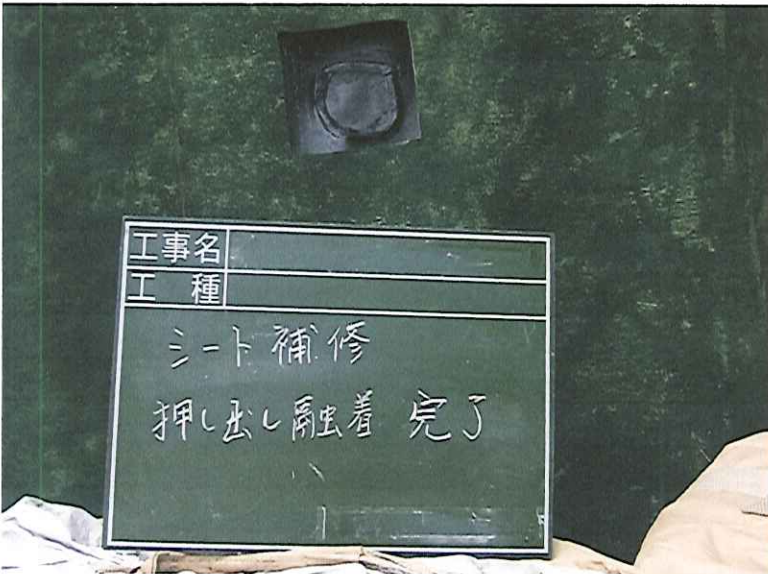 工事名
工種
シート補修
押し出し融着 完了